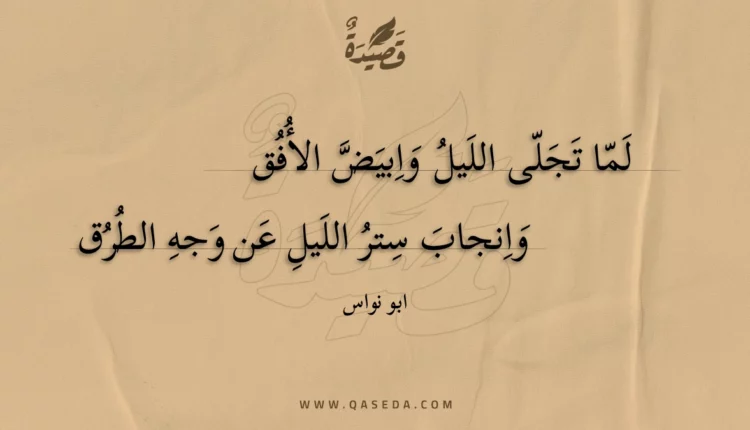 قَصِيدَةٌ
لَمّا تَجَلّى اللَيلُ وَاِبيَضَّ الأُفُق
وَاِنجابَ سِترُ اللَيلِ عَن وَجهِ الطُرُق
ابو نواس
WWW.QASEDA.COM